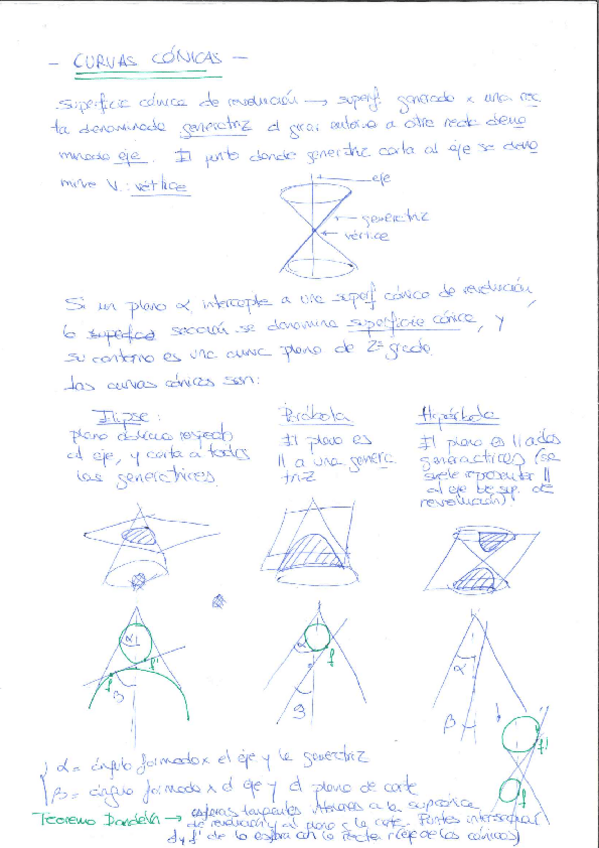 - CURVAS CÓNICAS -
Superficie cónica de revolución → superf. generada x una rec
ta denominada generatriz al girar entorno a otra recta deno
minada eje. El punto donde generatriz corta al eje se deno
mina V: vértice
eje
generatriz
vértice
Si un plano α intercepta a una superf cónica de revolución,
la superficie sección se denomina superficie cónica, y
su contorno es una curva plana de 2º grado.
Las curvas cónicas son:
Elipse:
plano oblicuo respecto
al eje, y corta a todas
las generatrices
Parábola
El plano es
|| a una genera
triz
Hipérbola
El plano es || a dos
generatrices (se
suele representar ||
al eje de sup. de
revolución)
α
f
f'
β
α
f
β
α
β
f'
f
α = ángulo formado x el eje y la generatriz
β = ángulo formado x el eje y el plano de corte
Teorema Dandelin → esferas tangentes interiores a la superficie
de revolución y al plano q la corta. Puntos intersección
f y f' de la esfera con la recta (eje de las cónicas)